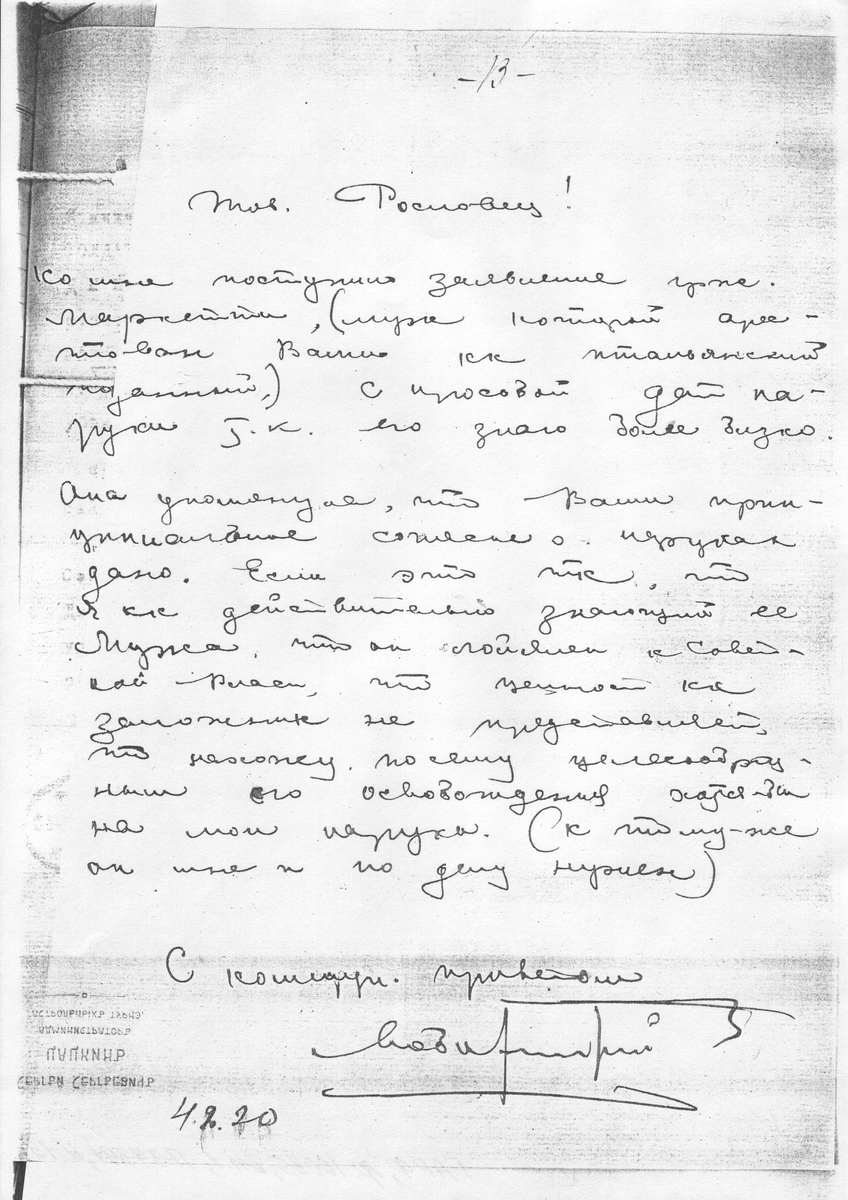 -13-
тов. Рословец!
Ко мне поступило заявление граж.
Маркетти, (муж которой аре-
тован Вами кк итальянский
поданный,) с просьбой дать на
поруки т.к. его знаю более близко.
Она упомянула, что Ваши прин-
ципиальное согласие о поруках
дано. Если это тк, то
я кк действительно знающий ее
Мужа, что он лойялен к Совет-
кой власти, что ценност кк
заложник не представляет,
то нахожу по сему целесообраз-
ным его освобождения хотя-бы
на мои поруки. (к тому-же
он мне и по делу нужен)
С коммун. приветом
4.2.20
АСТРОЛЬНЫХЪ ТУРНЭ
АДМИНИСТРАТОРЪ
ПАПКИНЪ
СЕРГЕЙ СЕРГЕЕВИЧЪ